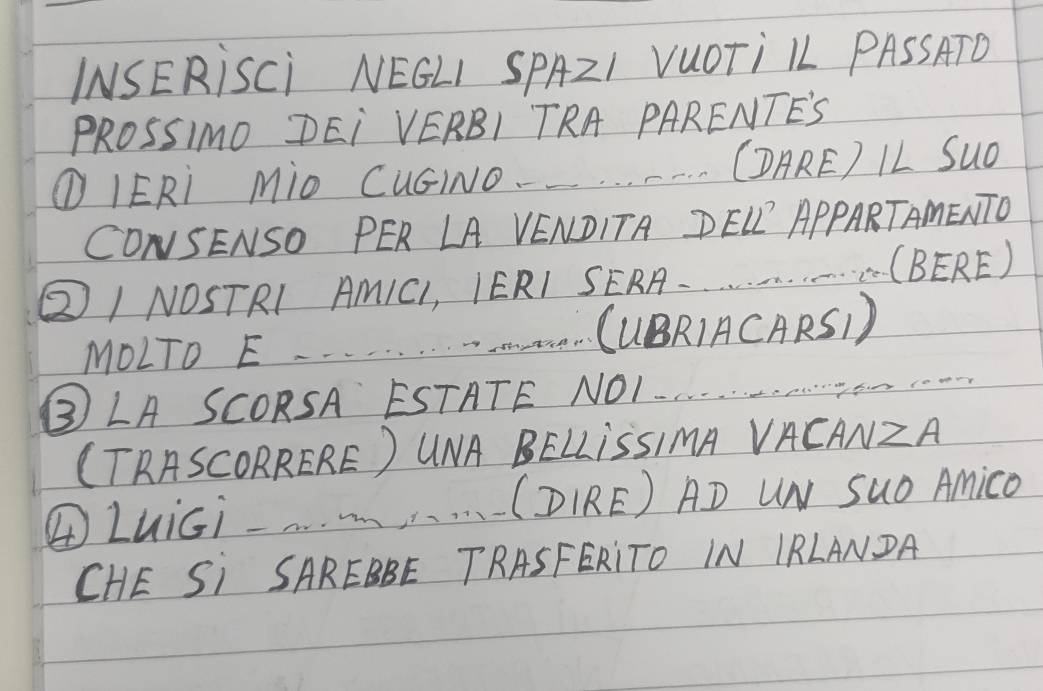 INSERISCI NEGLI SPAZI VUOTI IL PASSATO
PROSSIMO DEI VERBI TRA PARENTE'S
① IERI MIO CUGINO ............ (DARE) IL SUO
CONSENSO PER LA VENDITA DELL' APPARTAMENTO
② I NOSTRI AMICI, IERI SERA ............ (BERE)
MOLTO E ............ (UBRIACARSI)
③ LA SCORSA ESTATE NOI ............
(TRASCORRERE) UNA BELLISSIMA VACANZA
④ LUIGI ............ (DIRE) AD UN SUO AMICO
CHE SI SAREBBE TRASFERITO IN IRLANDA